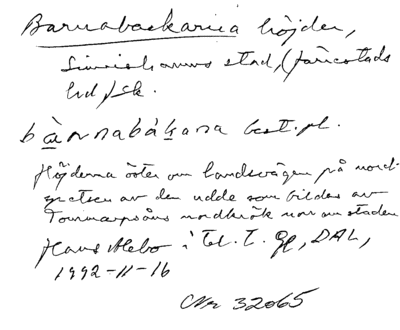 Barnabackarna höjder,
Simrishamns stad, (Järrestads
hd, Sk.
bànnabákana best. pl.
Höjderna öster om landsvägen på nord-
gränsen av den udde som bildas av
Tommarpsåns nordkrök norr om staden
Hans Alebo i Tel. t. GP, DAL,
1992-11-16
Nr 32065